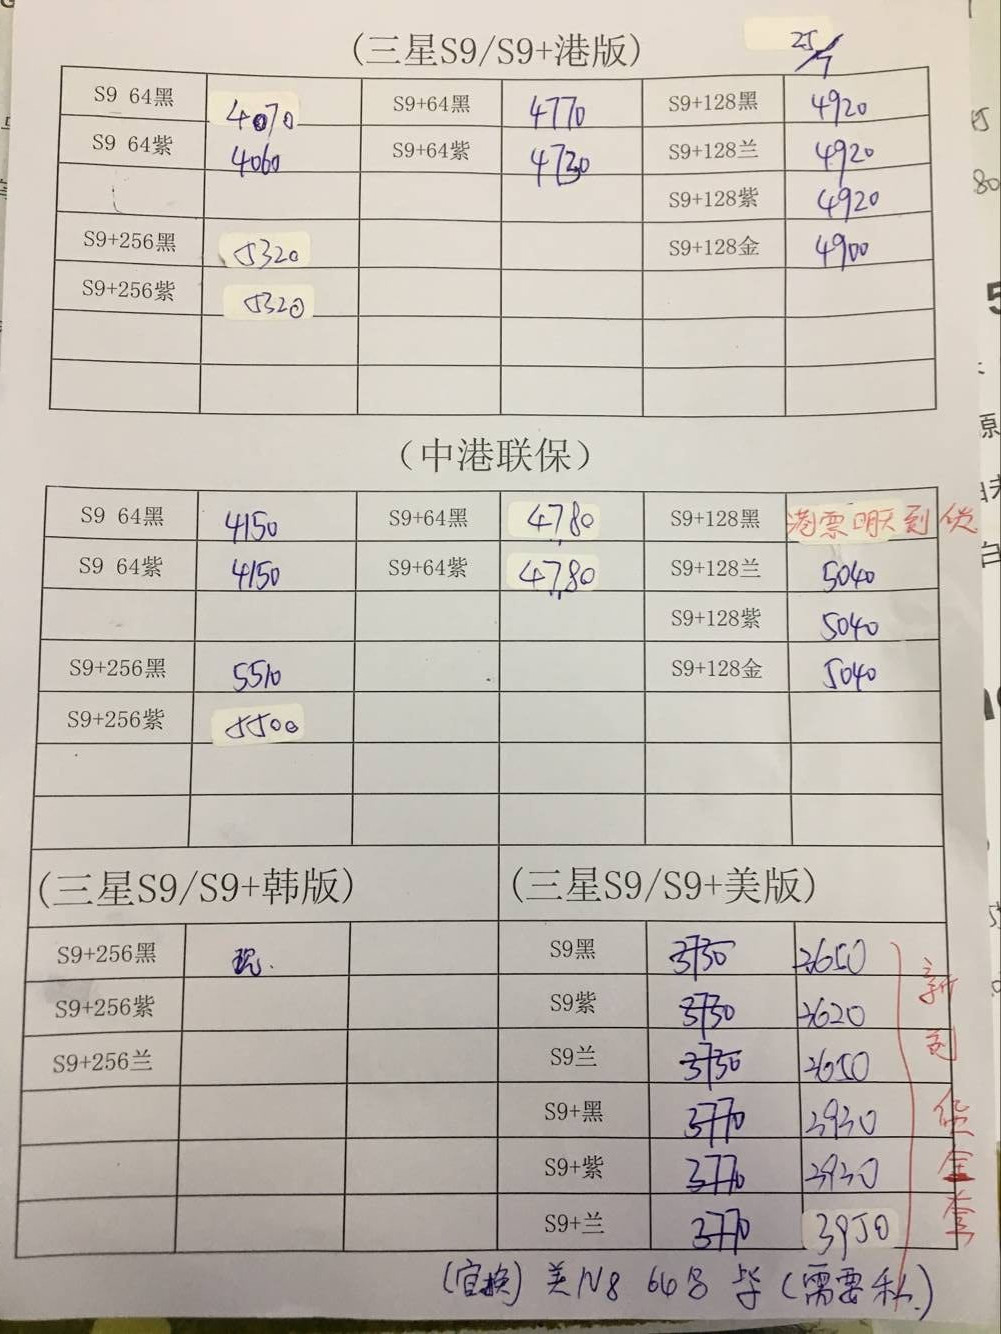 (三星S9/S9+港版) 25/7
S9 64黑 4070 S9+64黑 4770 S9+128黑 4920
S9 64紫 4060 S9+64紫 4730 S9+128兰 4920
S9+128紫 4920
S9+256黑 5320 S9+128金 4900
S9+256紫 5320
(中港联保)
S9 64黑 4150 S9+64黑 4780 S9+128黑 港票明天到货
S9 64紫 4150 S9+64紫 4780 S9+128兰 5040
S9+128紫 5040
S9+256黑 5510 S9+128金 5040
S9+256紫 5500
(三星S9/S9+韩版) (三星S9/S9+美版)
S9+256黑 现. S9黑 3730 3650
S9+256紫 S9紫 3730 3620
S9+256兰 S9兰 3730 3650
S9+黑 3770 3930
S9+紫 3770 3930
S9+兰 3770 3950
新到货全套
(官换) 美N8 64G (需要私)